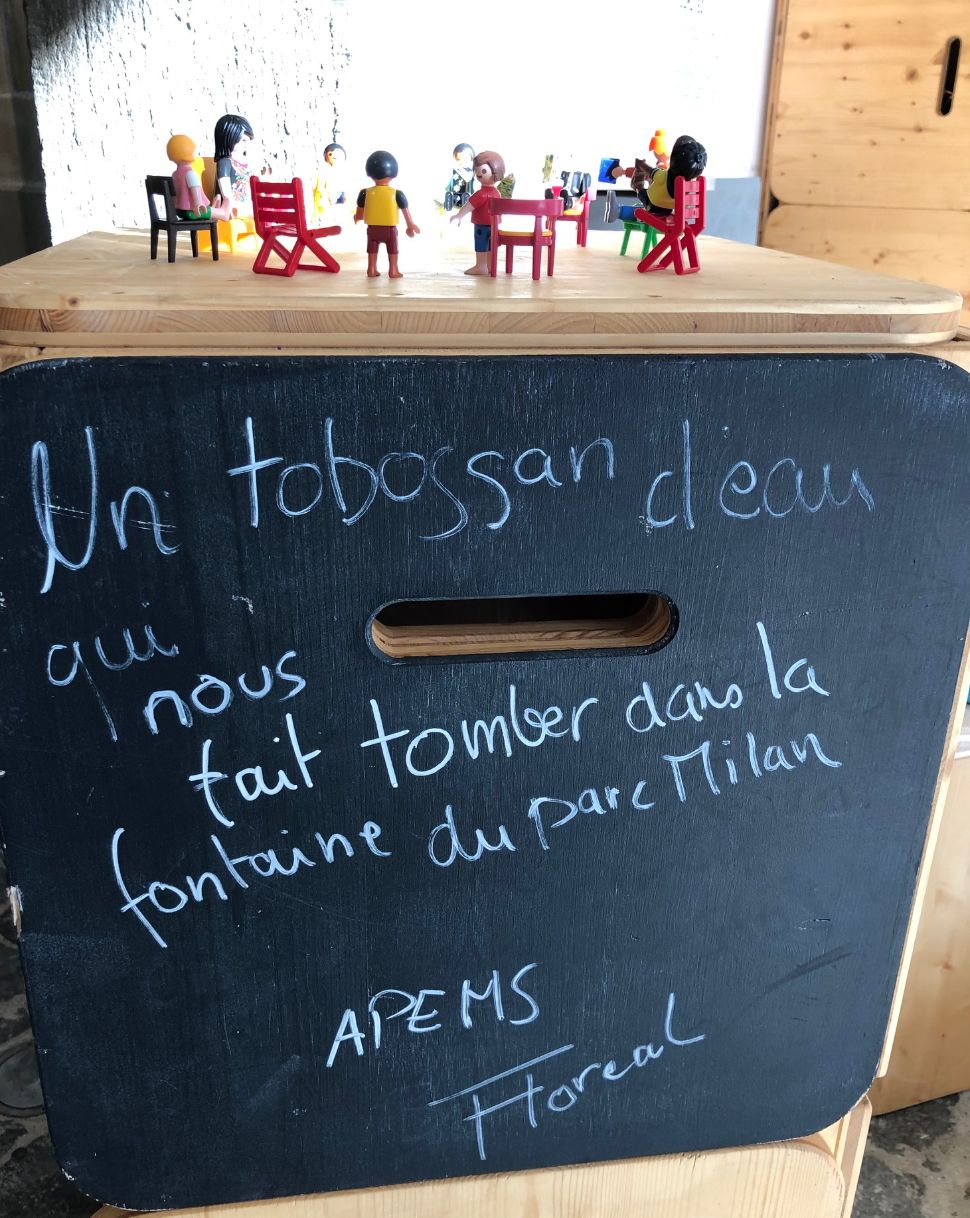 Un tobossan d'eau
qui
nous
fait tomber dans la
fontaine du parc Milan
APEMS
Floreal